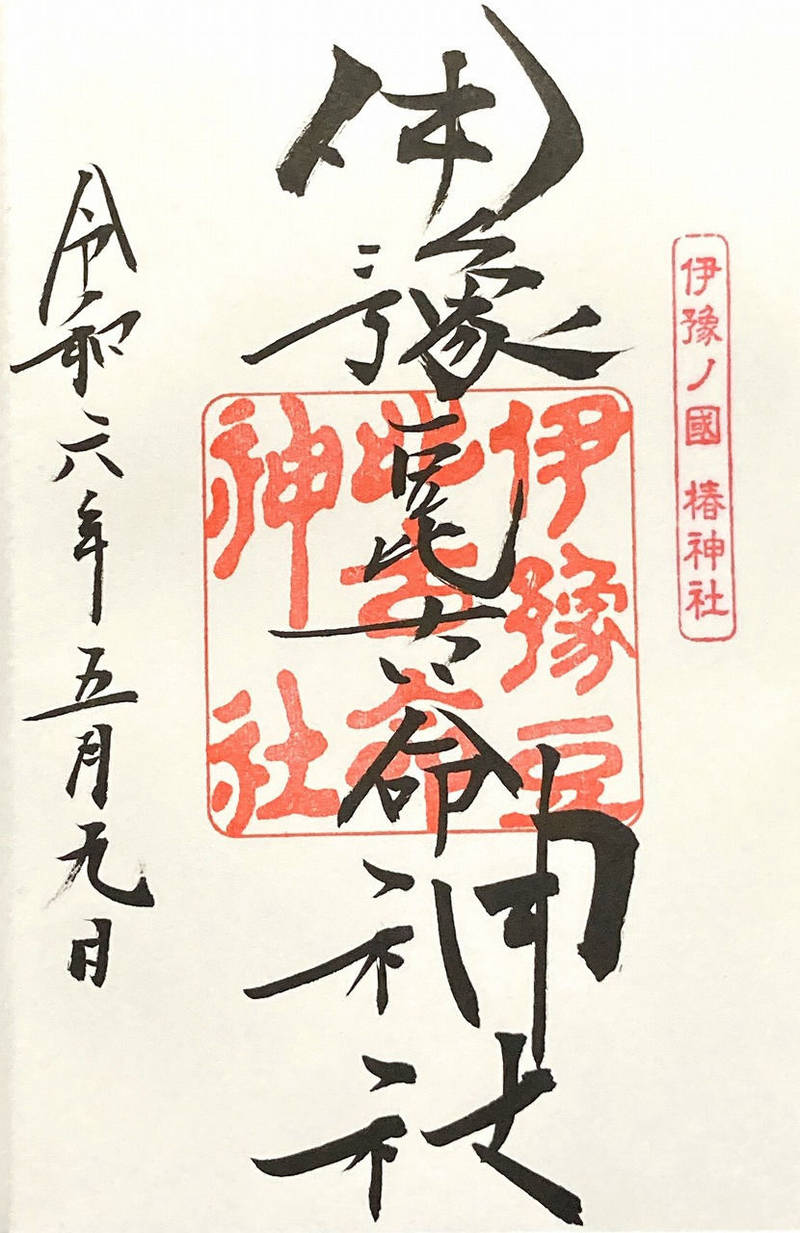 伊豫ノ國 椿神社
伊豫豆比古命神社
伊豫豆
比古命
神社
令和六年五月九日